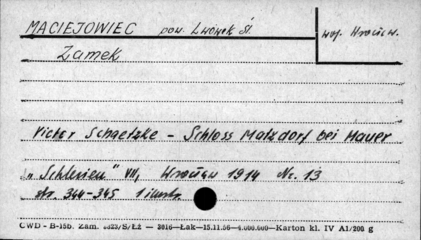 MACIEJOWIEC pow. Lwówek Śl. woj. Wrocław.
Zamek
Victor Schaetzke - Schloss Matzdorf bei Mauer
"Schlesien" VII, Wrocław 1914 Nr. 13
str. 344-345 1 ilustr.
CWD - B-15b. Zam. S/Łż — 3016—Łak—15.11.56—4.000.000—Karton kl. IV A1/200 g